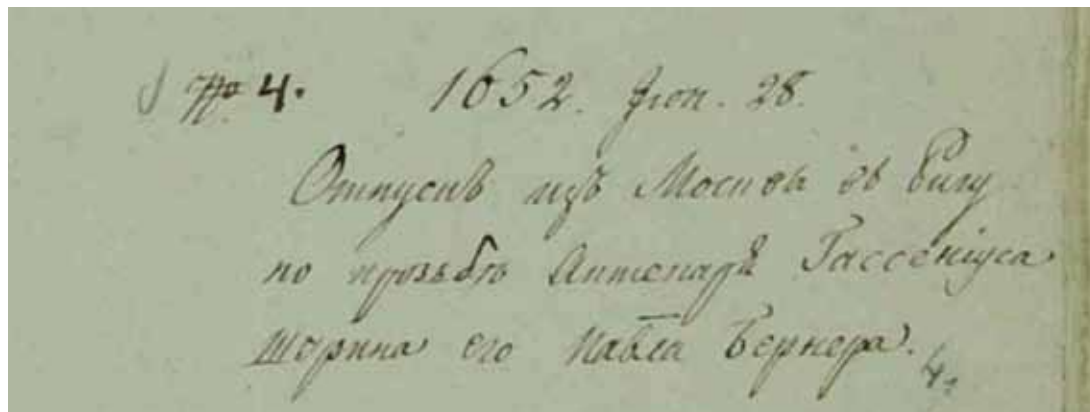 № 4. 1652. Июн. 28.
Отпускъ изъ Москвы въ Ригу
по прозьбѣ Аптекаря Гассеніуса
шюрина его Павла Бернера.
4.